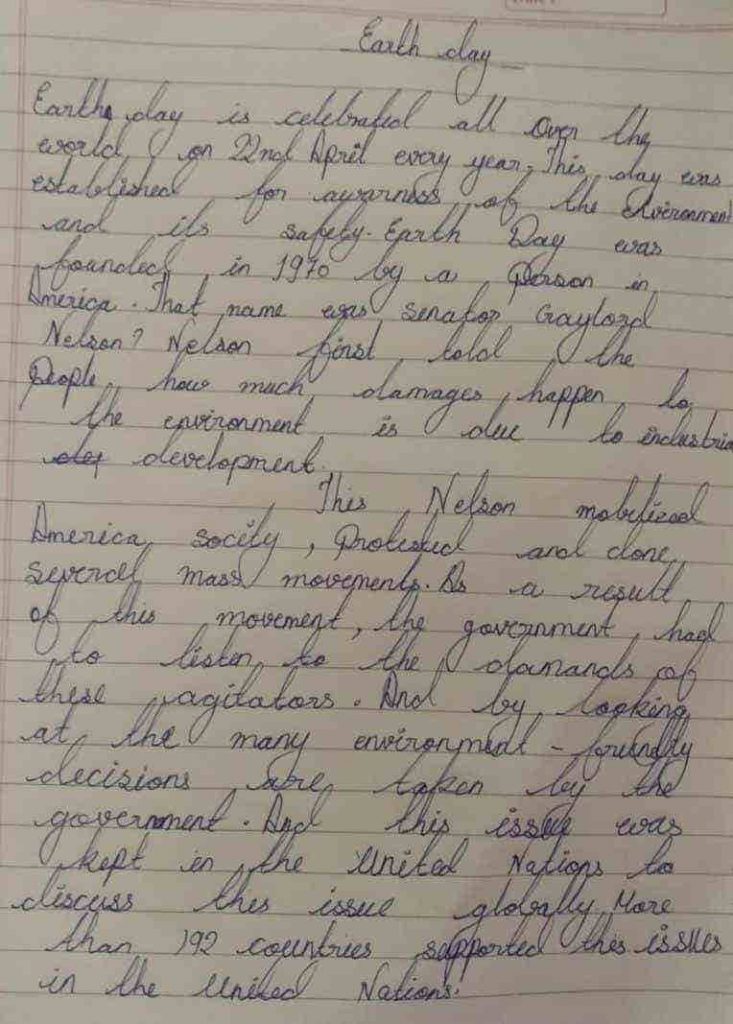 Earth day
Earth day is celebrated all over the
world, on 22nd April every year. This day was
established for awarness of the enverenment
and its safety. Earth Day was
founded in 1970 by a Person in
America. That name was Senator Gaylord
Nelson? Nelson first told the
People how much damages happen to
the environment is due to industria
development.
This Nelson mobilized
America socity, Protested and done
several mass movements. As a result
of this movement, the government had
to listen to the damands of
these agitators. And by looking
at the many environment - frundly
decisions are taken by the
government. And this issue was
kept in the United Nations to
discuss this issue globally. More
than 192 countries supported this issues
in the United Nations.